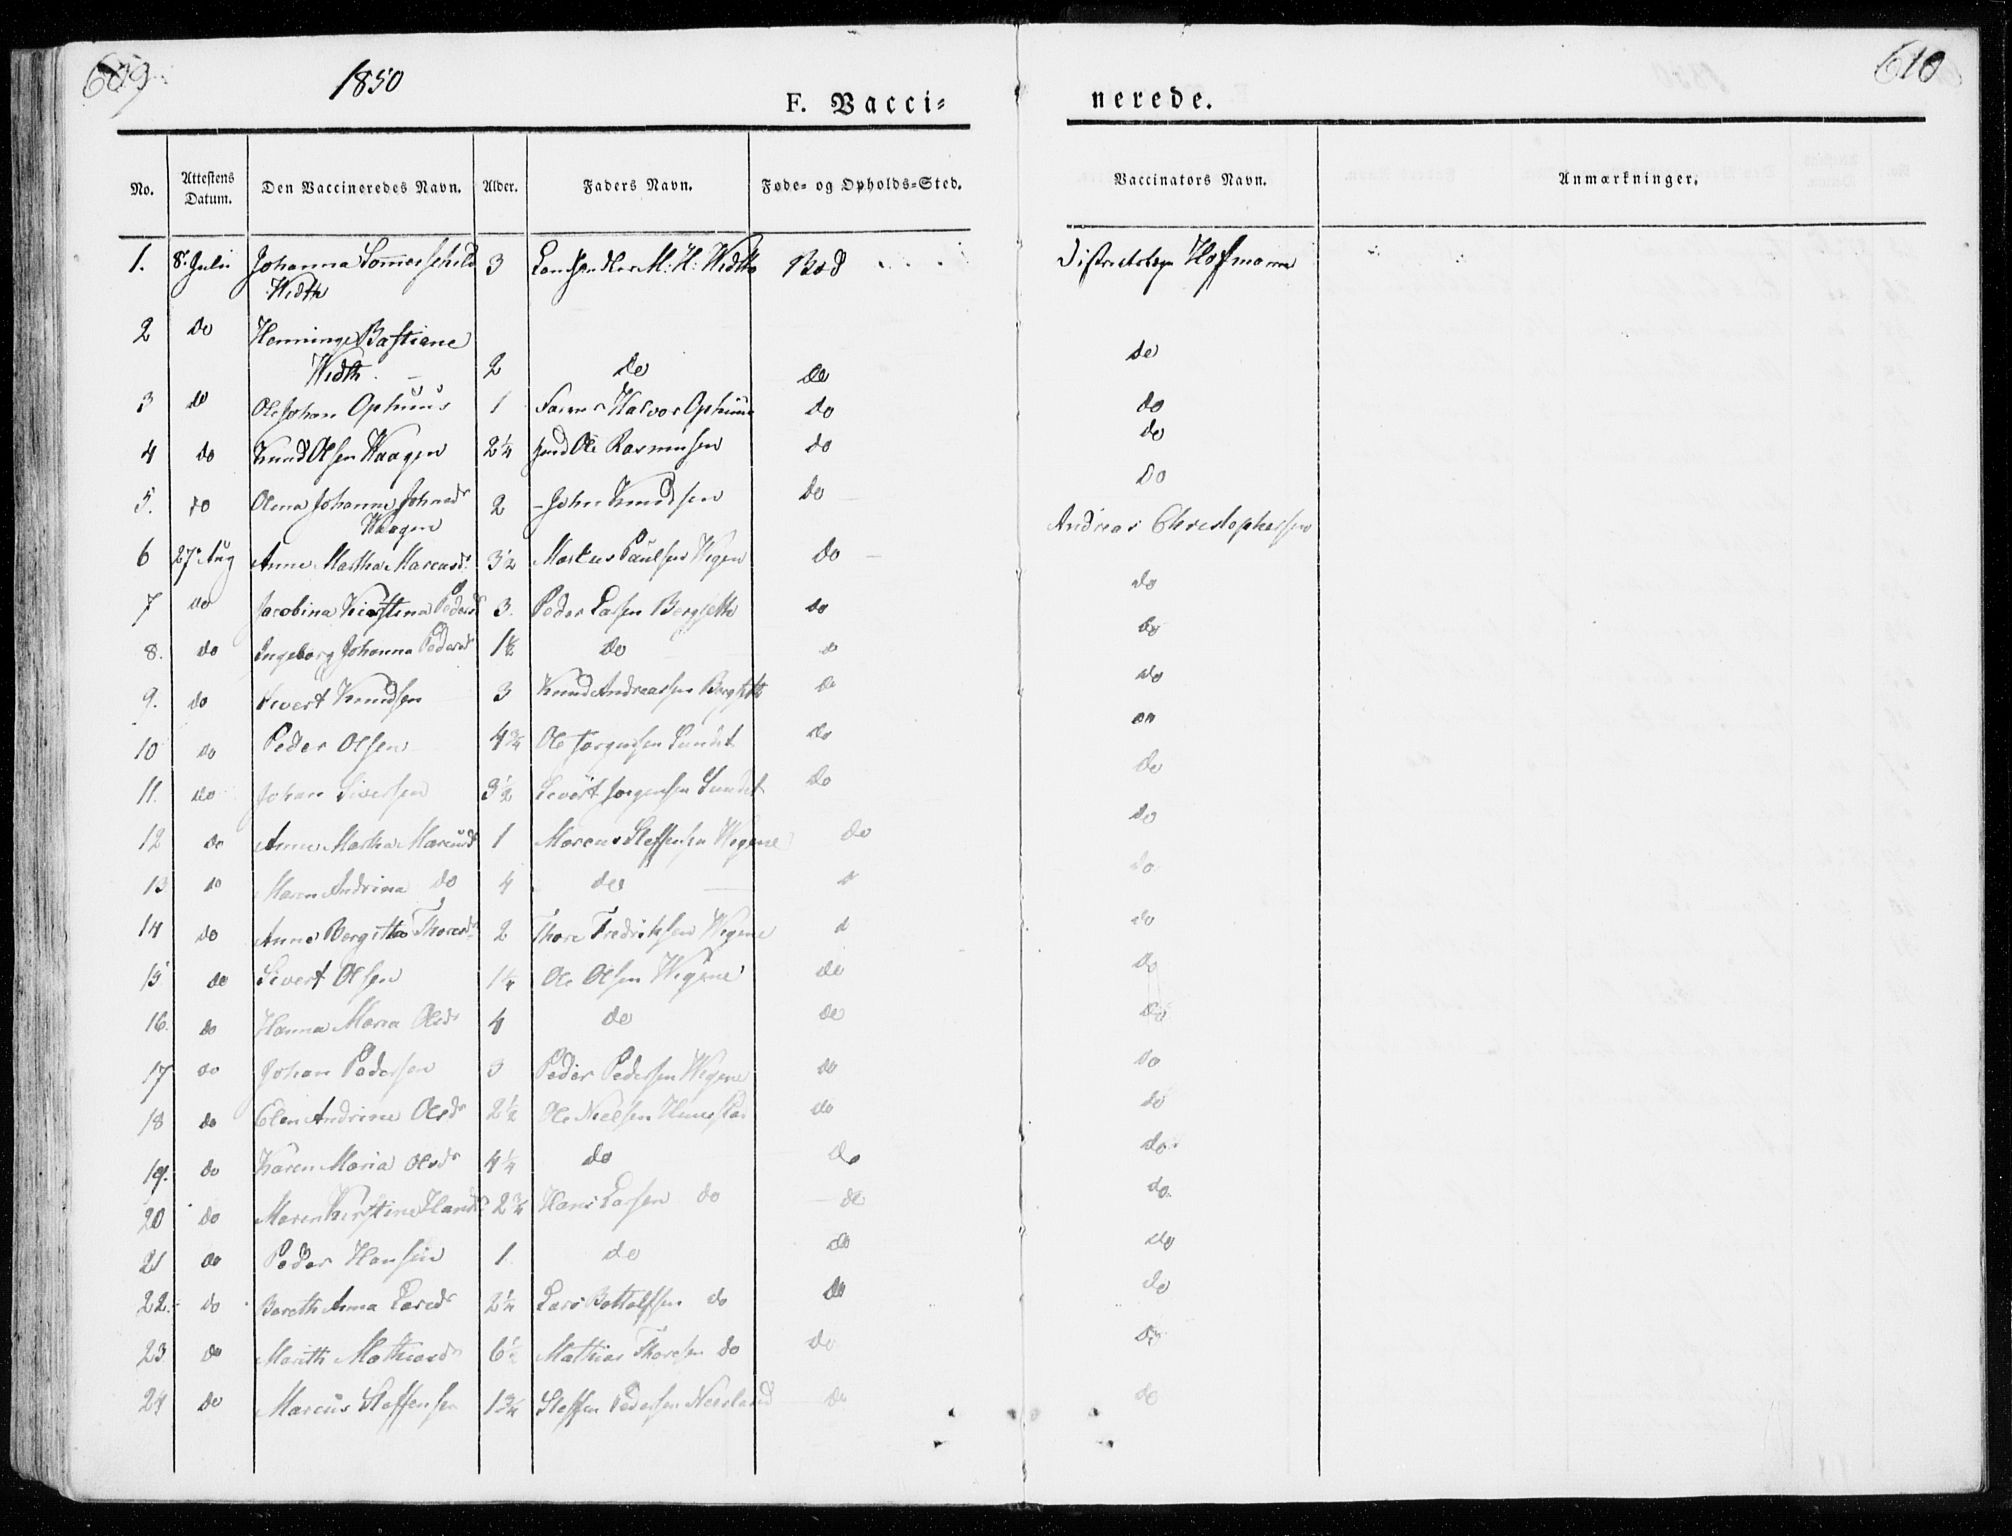 609
1850
F. Vacci=
nerede.
610
No. Attestens Datum. Den Vaccineredes Navn. Alder. Faders Navn. Føde= og Opholds=Sted. Vaccinators Navn. Anmærkninger.
1. 8. Julii Johanna Sommerschild 3 Landhandler M: H: Width Bod Hoffmann
Width
2 do Henninge Bastiane
Width 2 do do do
3 do Ole Johan Ophuus 1 Halvor Ophuus do do
4 do Knud Olsen Waagen 2¼ Ole Rasmussen do do
5. do Olena Johanna Johnsdr 2 - John Knudsen do do
Waagen
6 27 Aug Anne Martha Marcusdr 3½ Markus Paulsen Wegen do Andreas Christophersen
7 do Jacobina Kirstina Pedersdr 3. Peder Larsen Bergseth do do
8. do Ingeborg Johanna Pedersdr 1½ do do do
9. do Sivert Knudsen 3 Knud Andreassen Bergseth do do
10 do Peder Olsen 4¾ Ole Jørgensen Sundet do do
11. do Johan Siversen 3½ Sivert Jørgensen Sundet do do
12 do Anne Martha Marcusdr 1 Marcus Steffensen Wegene do do
13 do Maren Andrina do 4 do d do
14 do Anne Bergitha Thoresdr 2 Thore Fredriksen Wegene d do
15 do Sivert Olsen 1¼ Ole Olsen Wegene do do
16. do Hanna Maria Olsdr 4 do do do
17 do Johan Pedersen 3 Peder Pedersen Wegene do do
18 do Elen Andrine Olsdr 2½ Ole Nielsen do do
19. do Karen Maria Olsdr 4¼ do do do
20 do Maren Kirstine Hansdr 2¾ Hans Larsen do do do
21 do Peder Hansen 1 do do do
22. do Bereth Anna Larsdr 2¼ Lars Bottolfsen do do do
23. do Marith Mathiasdr 6½ Mathias Thoresen do do do
24 do Marcus Steffensen 1¾ Steffen Pedersen Neerland do do